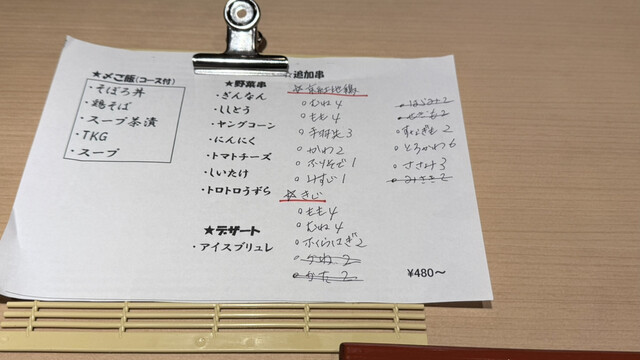 ★〆ご飯(コース付)
・そぼろ丼
・鶏そば
・スープ茶漬
・TKG
・スープ
★野菜串
・ぎんなん
・ししとう
・ヤングコーン
・にんにく
・トマトチーズ
・しいたけ
・トロトロうずら
★デザート
・アイスブリュレ
☆追加串
むね4
もも4
手羽先3
かわ2
ふりそで1
みすじ1
☆きじ
もも4
むね4
ふくらはぎ2
かわ2
かた2
はらみ2
すなぎも2
とろかわ6
ささみ3
¥480〜